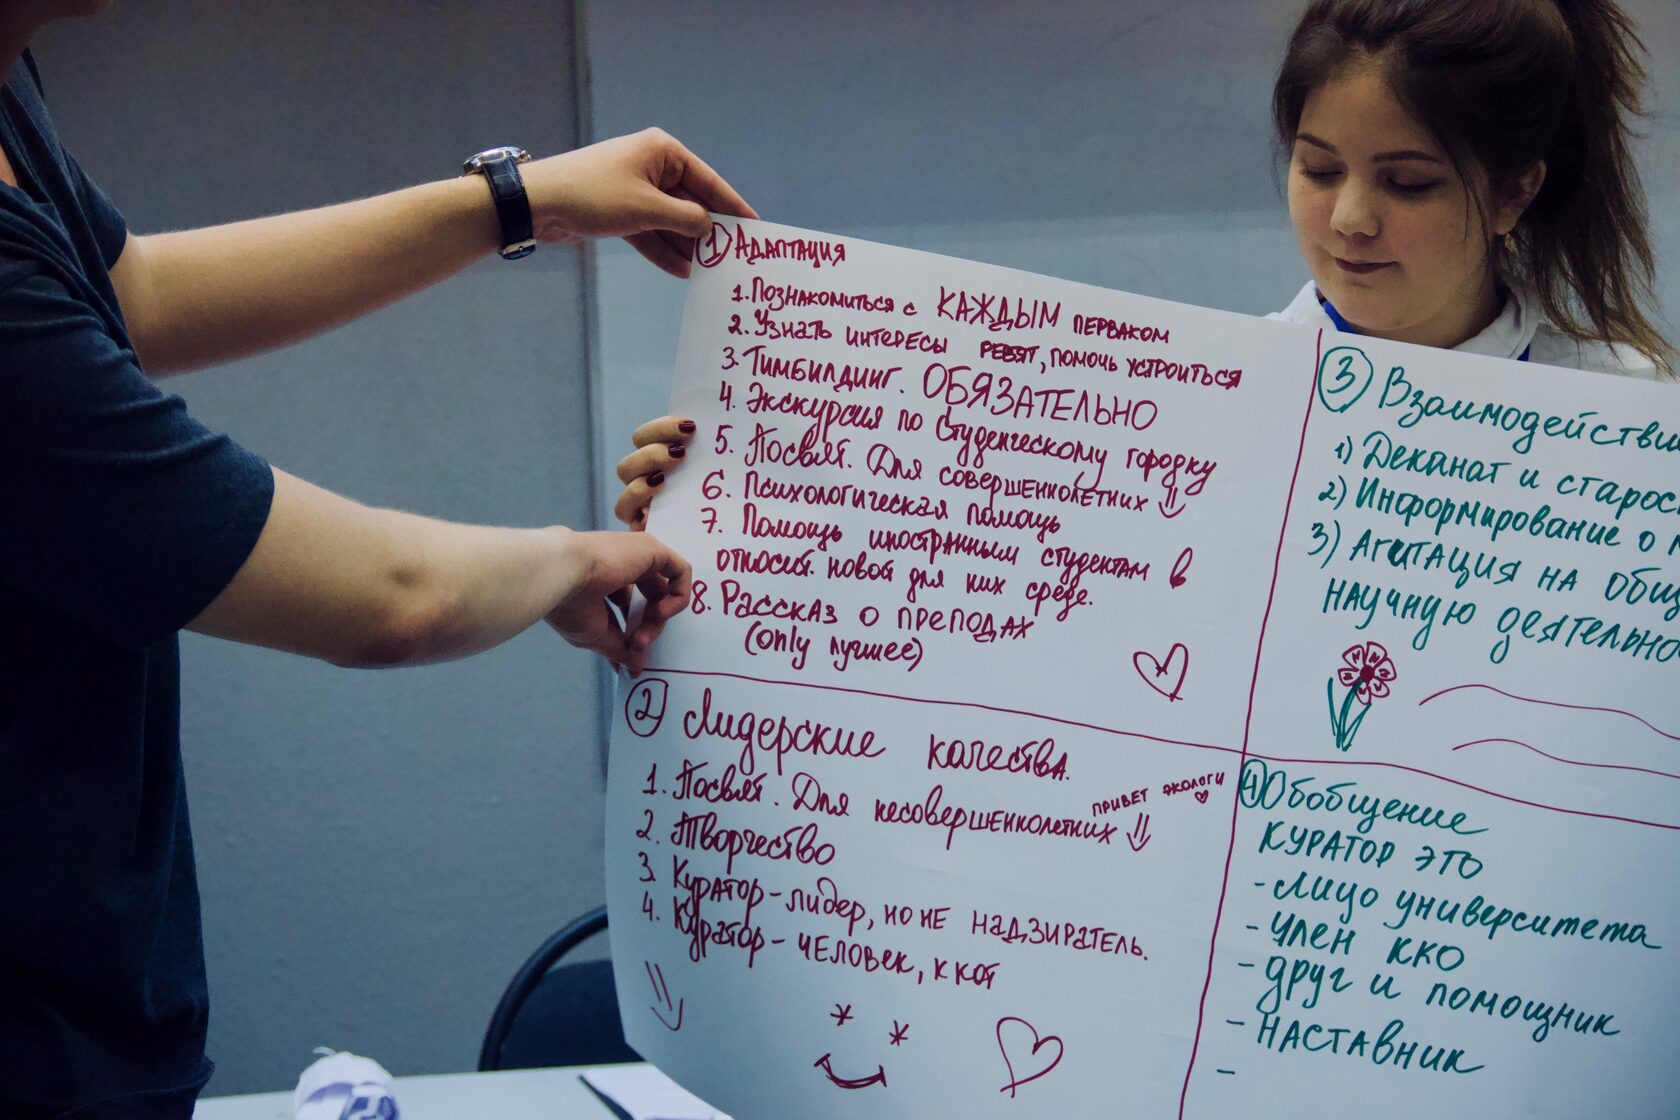 1 Адаптация
1. Познакомиться с КАЖДЫМ перваком
2. Узнать интересы ребят, помочь устроиться
3. Тимбилдинг. ОБЯЗАТЕЛЬНО
4. Экскурсия по студенческому городку
5. Посвят. Для совершеннолетних
6. Психологическая помощь
7. Помощь иностранным студентам в
относит. новой для них среде.
8. Рассказ о преподах
(only лучшее)
2 Лидерские качества.
1. Посвят. Для несовершеннолетних
привет экологи
2. Творчество
3. Куратор - лидер, но не надзиратель.
4. Куратор - человек, к кот
3 Взаимодействи
1) Деканат и старос
2) Информирование о
3) Агитация на общ
научную деятельно
4 Обобщение
Куратор это
- лицо университета
- член ККО
- друг и помощник
- наставник
-